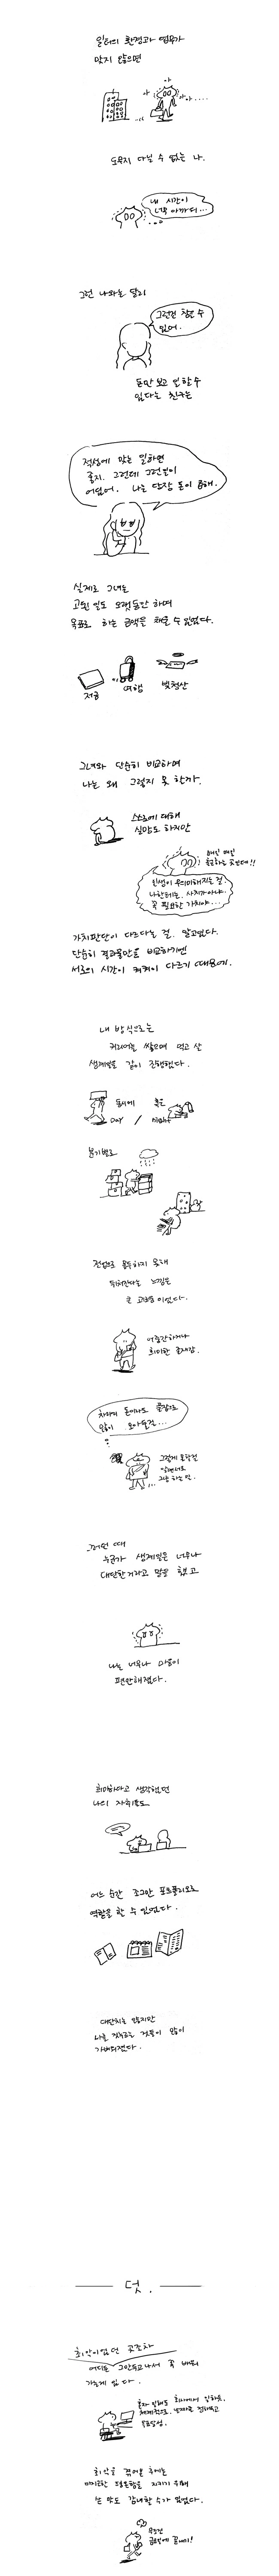 일터의 환경과 업무가
맞지 않으면
아
아
아
아....
도무지 다닐 수 없는 나.
내 시간이
너무 아까워...
그런 나와는 달리
그런건 참을 수
있어.
돈만 보고 일할 수
있다는 친구는
적성에 맞는 일하면
좋지. 그런데 그런 일이
어딨어. 나는 당장 돈이 급해.
실제로 그녀는
고된 일도 오랫동안 하며
목표로 하는 금액을 채울 수 있었다.
저금
여행
빚청산
그녀와 단순히 비교하며
나는 왜 그렇지 못 한가.
스스로에 대해
실망도 하지만
매일 매일
출근하는 곳인데!!
인생이 무의미해지는 걸.
나한테는 사치가 아냐.
꼭 필요한 가치야...
가치판단이 다르다는 걸. 알고있다.
단순히 결과물만을 비교하기엔
서로의 시간이 켜켜이 다르기 때문에.
내 방식으로는
커리어를 쌓으며 먹고 살
생계일을 같이 진행했다.
동시에 혹은
DAY / Night
분기별로
전업으로 몰두하지 못해
뒤처진다는 느낌은
큰 고민이었다.
어중간하거나
희미한 존재감.
차라리 돈이나도 풀잡으로
왕창 모아둘걸...
그렇게 못한걸
알면서도
그냥 하는 말.
그런 때
누군가 생계일은 너무나
대단한거라고 말을 했고
나는 너무나 마음이
편안해졌다.
희미하다고 생각했던
나의 자취들도
어느 순간 조그만 포트폴리오로
역할을 할 수 있었다.
대단치는 않지만
나를 짓누르는 것들이 많이
가벼워졌다.
덧.
최악이었던 곳조차
어디든 그만두고나서 꼭 배워
가는게 있다.
혼자 일해도 회사에서 일하듯.
최악을 겪어본 후에는
쓴 맛도 감내할 수가 있었다.
무조건
금요일에 끝내기!